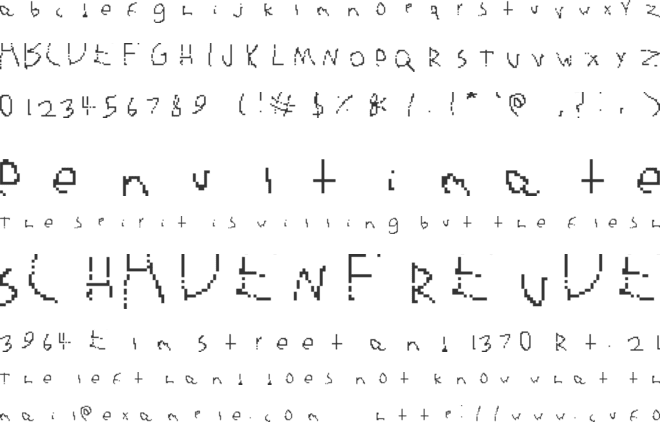 a b c d e f g h i j k l m n o p q r s t u v w x y z
A B C D E F G H I J K L M N O P Q R S T U V W X Y Z
0123456789 (!#$%&/.
Penultimate
The spirit is willing but the flesh
SCHADENFREUDE
3964 Elm Street and 1370 Rt. 21
The left hand does not know what th
mail@example.com http://www.cufo